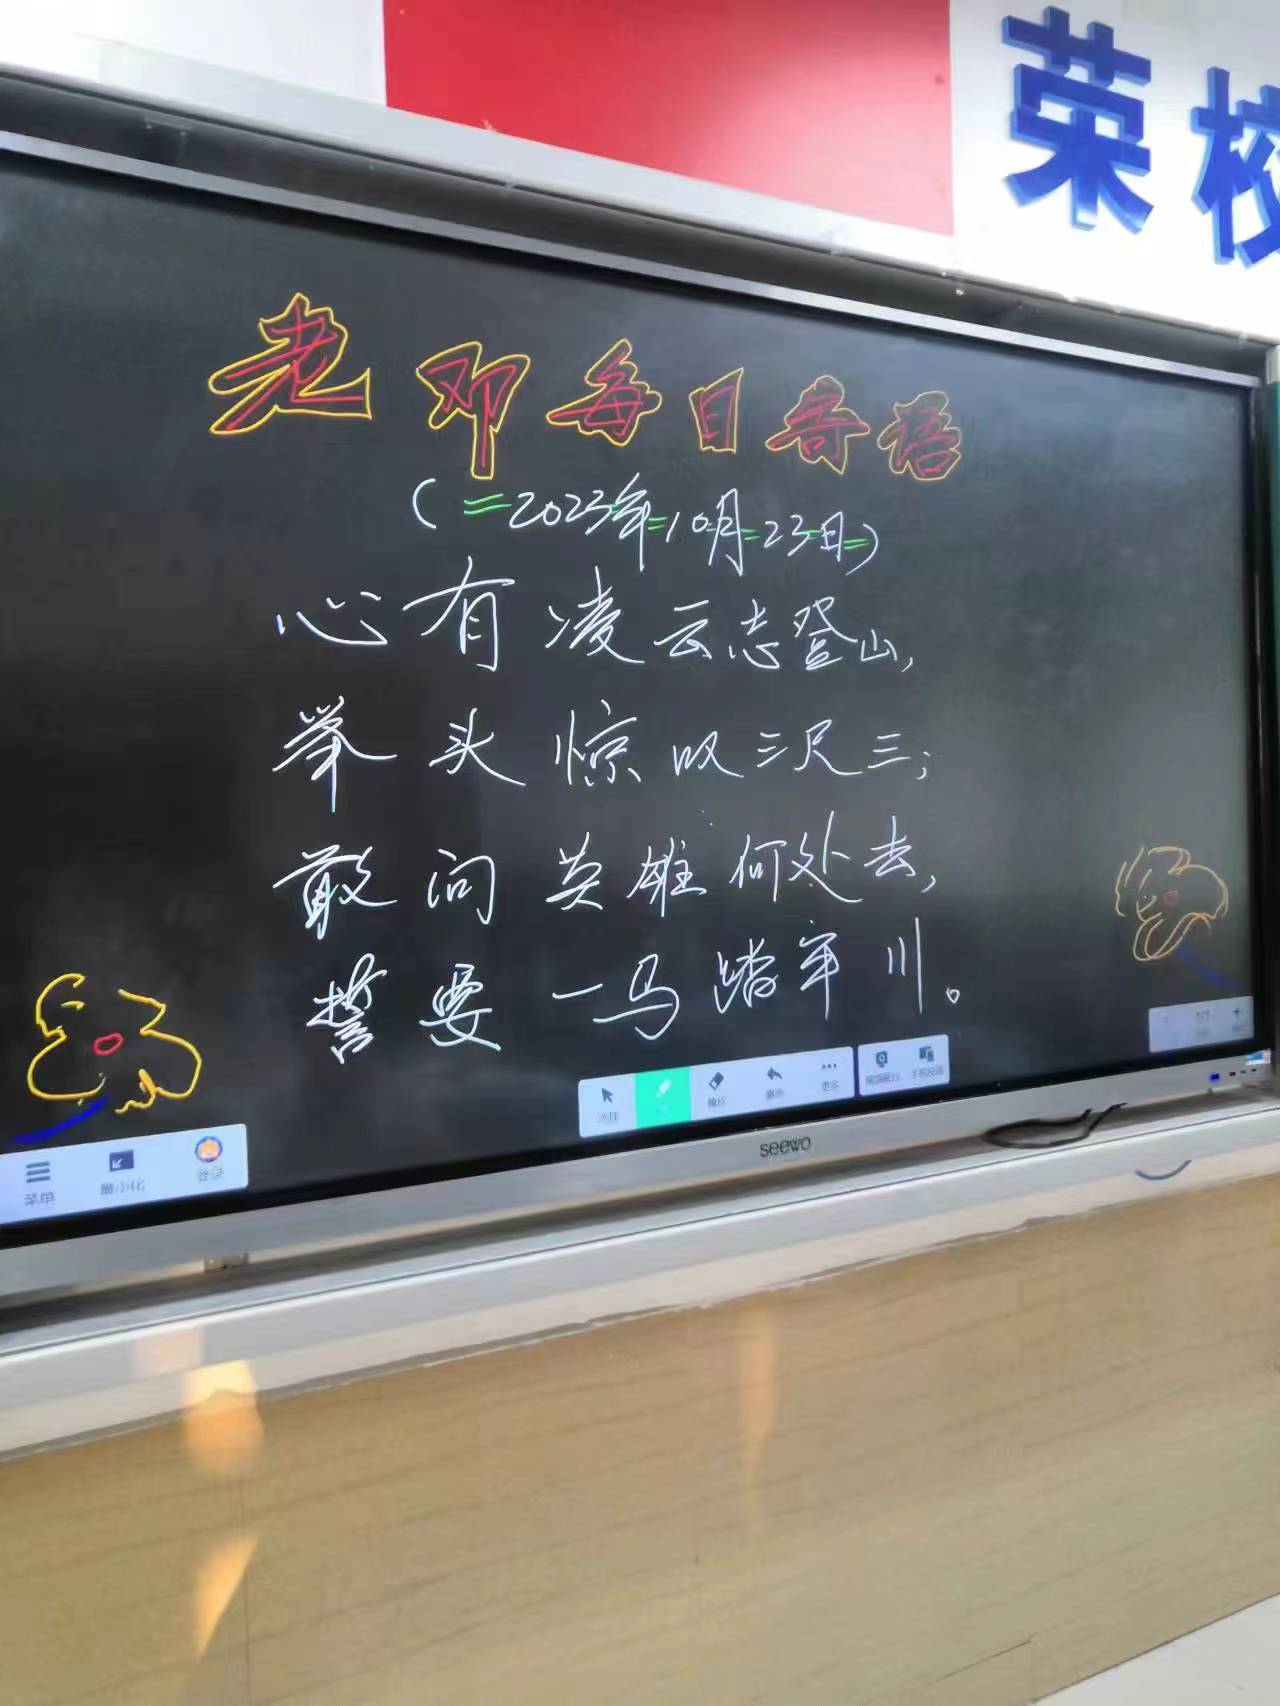 荣校
老邓每日寄语
(=2023年=10月=23日=)
心有凌云志登山,
举头惊叹三尺三;
敢问英雄何处去,
誓要一马踏平川。
选择 橡皮 撤销 更多
seewo
菜单 最小化 登录